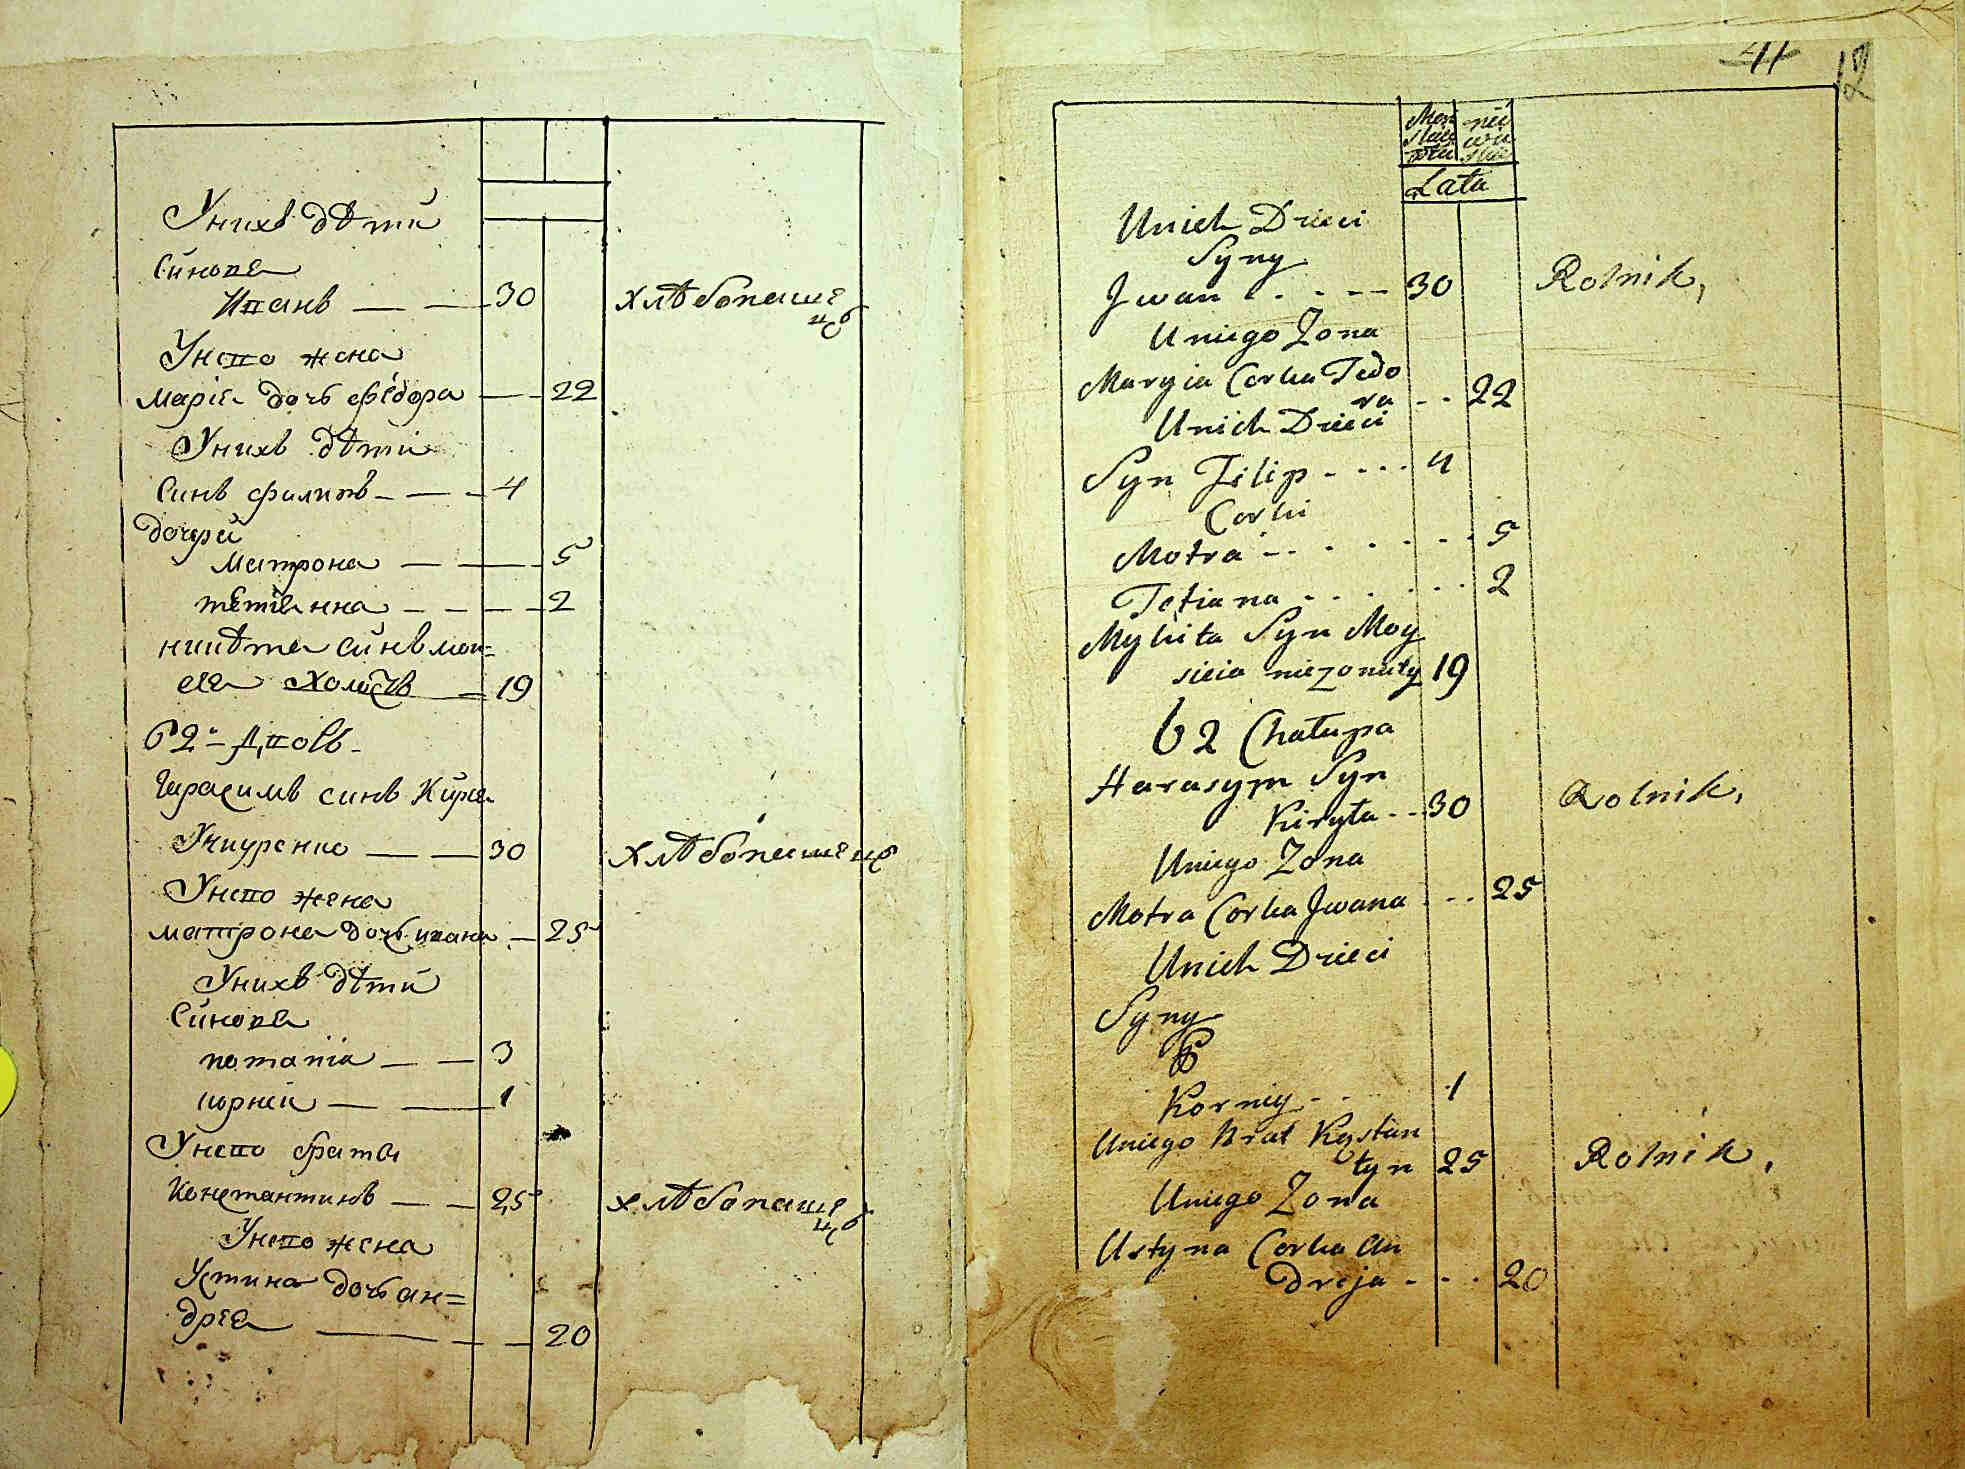 Унихъ дѣти
Синовя
Иванъ — — 30 хлѣбопаше
цъ
Унего жена
Марія дочъ фéдора — — 22
Унихъ дѣти
Синъ филипъ — — - 4
дочери
Матрона — — - 5
тетіянна — - — - 2
никѣта синъ мои=
сея холостъ — 19
62й дворъ
Герасимъ синъ Кири-
— — 30 хлѣбопашецъ
Унего жена
матрона дочъ ивана — 25
Унихъ дѣти
Синовя
потапій — — 3
корнѣй — — 1
Унего братъ
Константинъ — — 25 хлѣбопаше
цъ
Унего жена
Устина дочъ ан=
дрея — — 20
11 12
Męz
nie
Lata
Unich Dzieci
Syny
Jwan . . - -- 30 Rolnik,
Uniego Zona
Maryia Corka Fedo
ra - - 22
Unich Dzieci
Syn Filip - - - - 4
Corki
Motra - . . - . - - . 5
Tetiana . . . . . . 2
Mykita Syn Moy
sieia niezonaty 19
62 Chałupa
Harasym Syn
Kiryła - - 30 Rolnik,
Uniego Zona
Motra Corka Jwana . - . 25
Unich Dzieci
Syny
Korniy - . 1
Uniego Brat Kostan
tyn 25 Rolnik,
Uniego Zona
Ustyna Corka An
dreja - - . 20